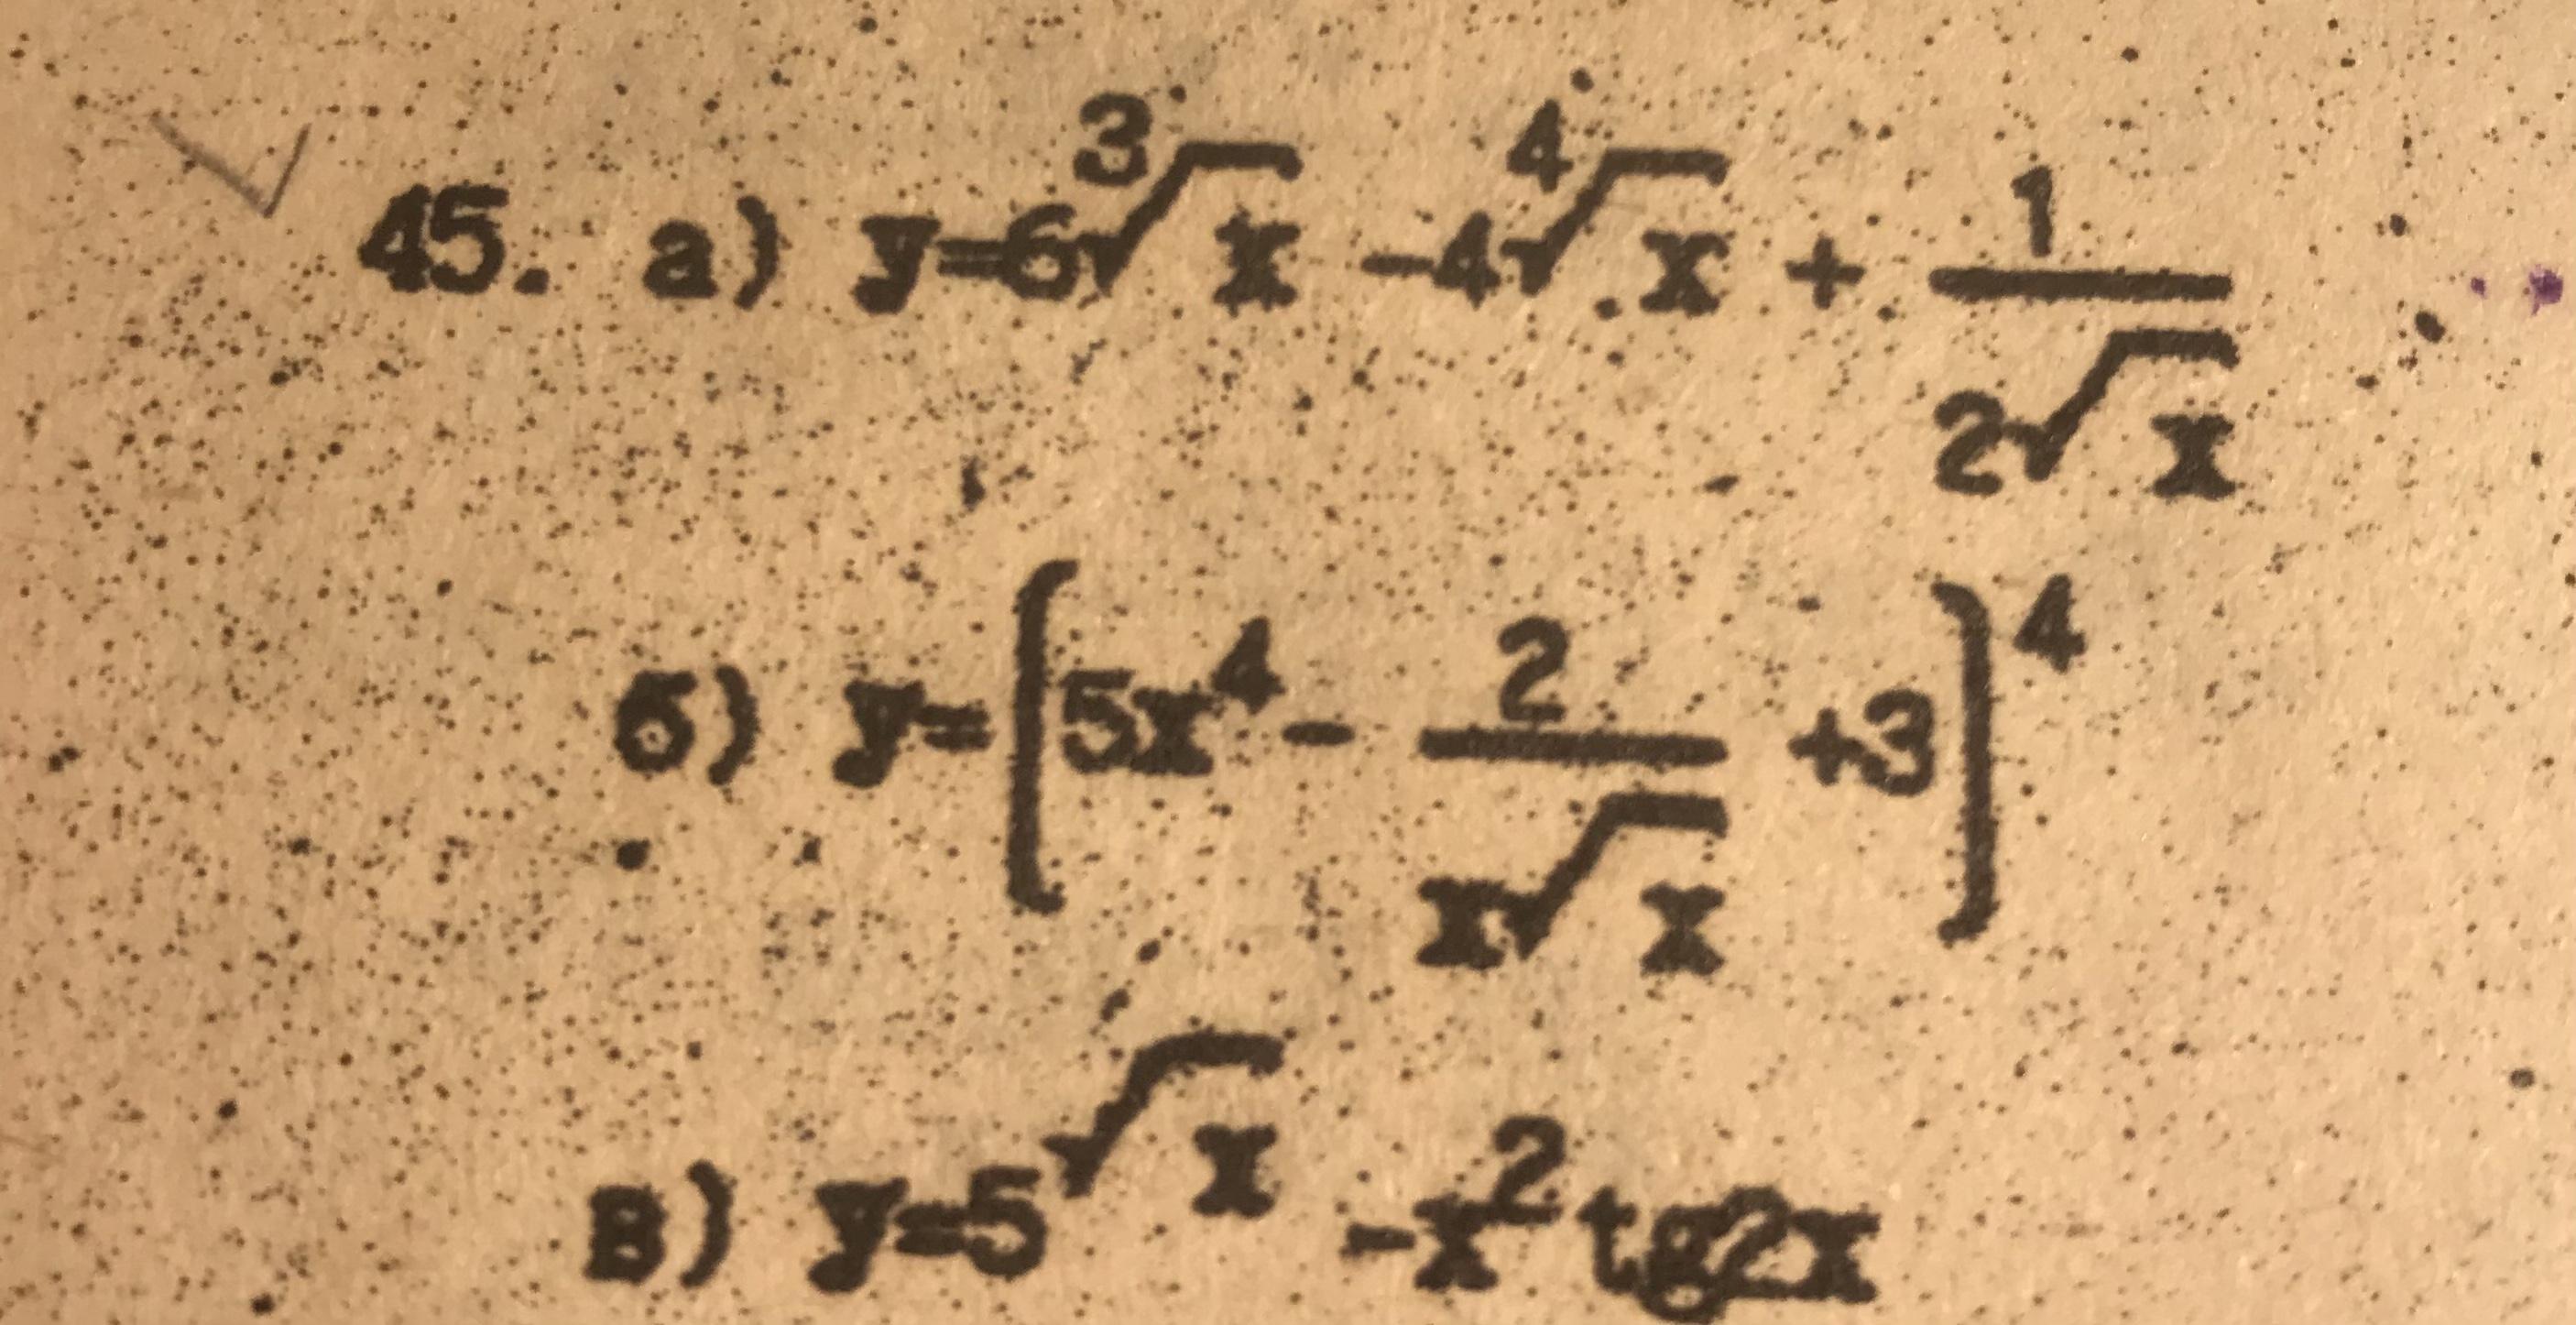 45. а) y=6∛x -4∜x + 1/(2√x)
б) y=[5x⁴- 2/(x√x) +3]⁴
в) y=5^√x -x²tg2x